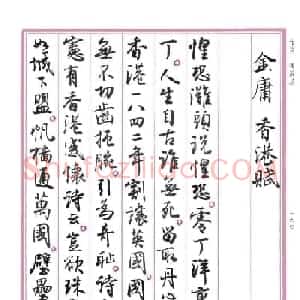 金庸 香港賦
惶恐灘頭說惶恐。零丁洋
丁。人生自古誰無死。留取丹心
香港一八四二年割讓英國。國
無不切齒扼腕。引為奇恥。待
憲有香港感懷詩云。豈欲珠
城下盟。帆檣通萬國。壁壘